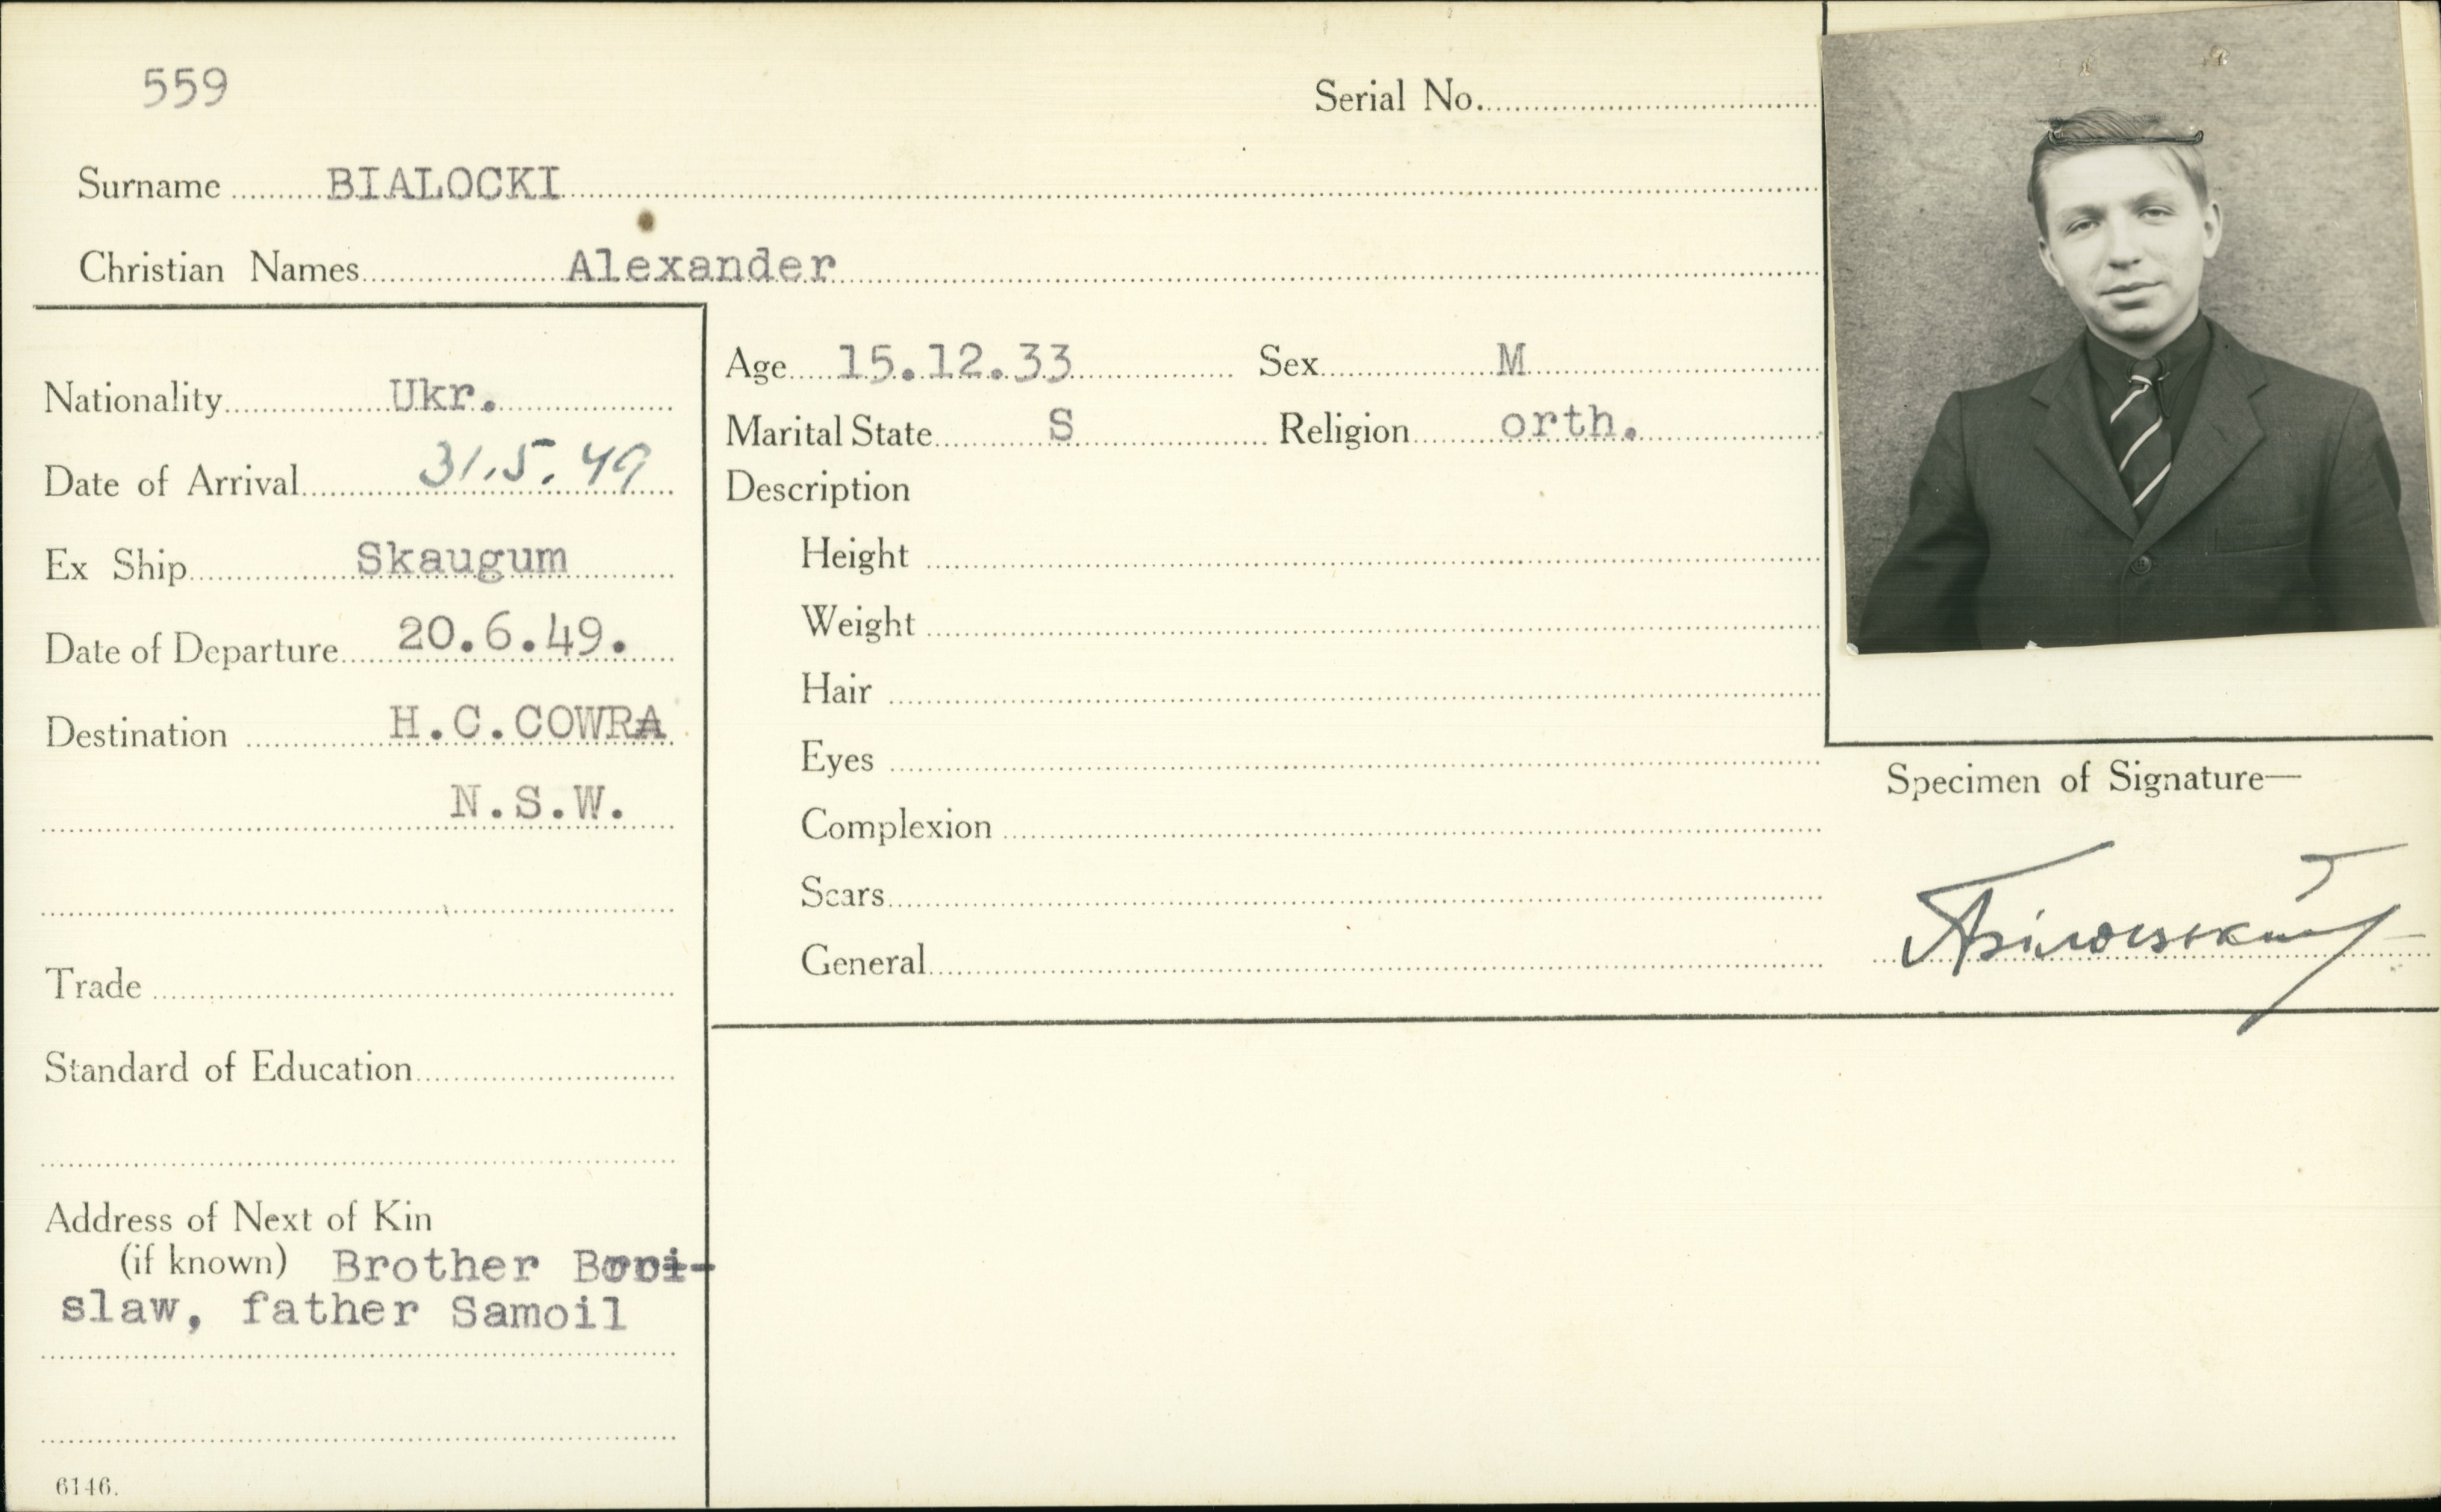 559
Serial No.
Surname BIALOCKI
Christian Names Alexander
Nationality Ukr.
Date of Arrival 31.5.49
Ex Ship Skaugum
Date of Departure 20.6.49.
Destination H.C.COWRA
N.S.W.
Trade
Standard of Education
Address of Next of Kin
(if known) Brother Bori-
slaw, father Samoil
6146.
Age 15.12.33 Sex M
Marital State S Religion orth.
Description
Height
Weight
Hair
Eyes
Complexion
Scars
General
Specimen of Signature—